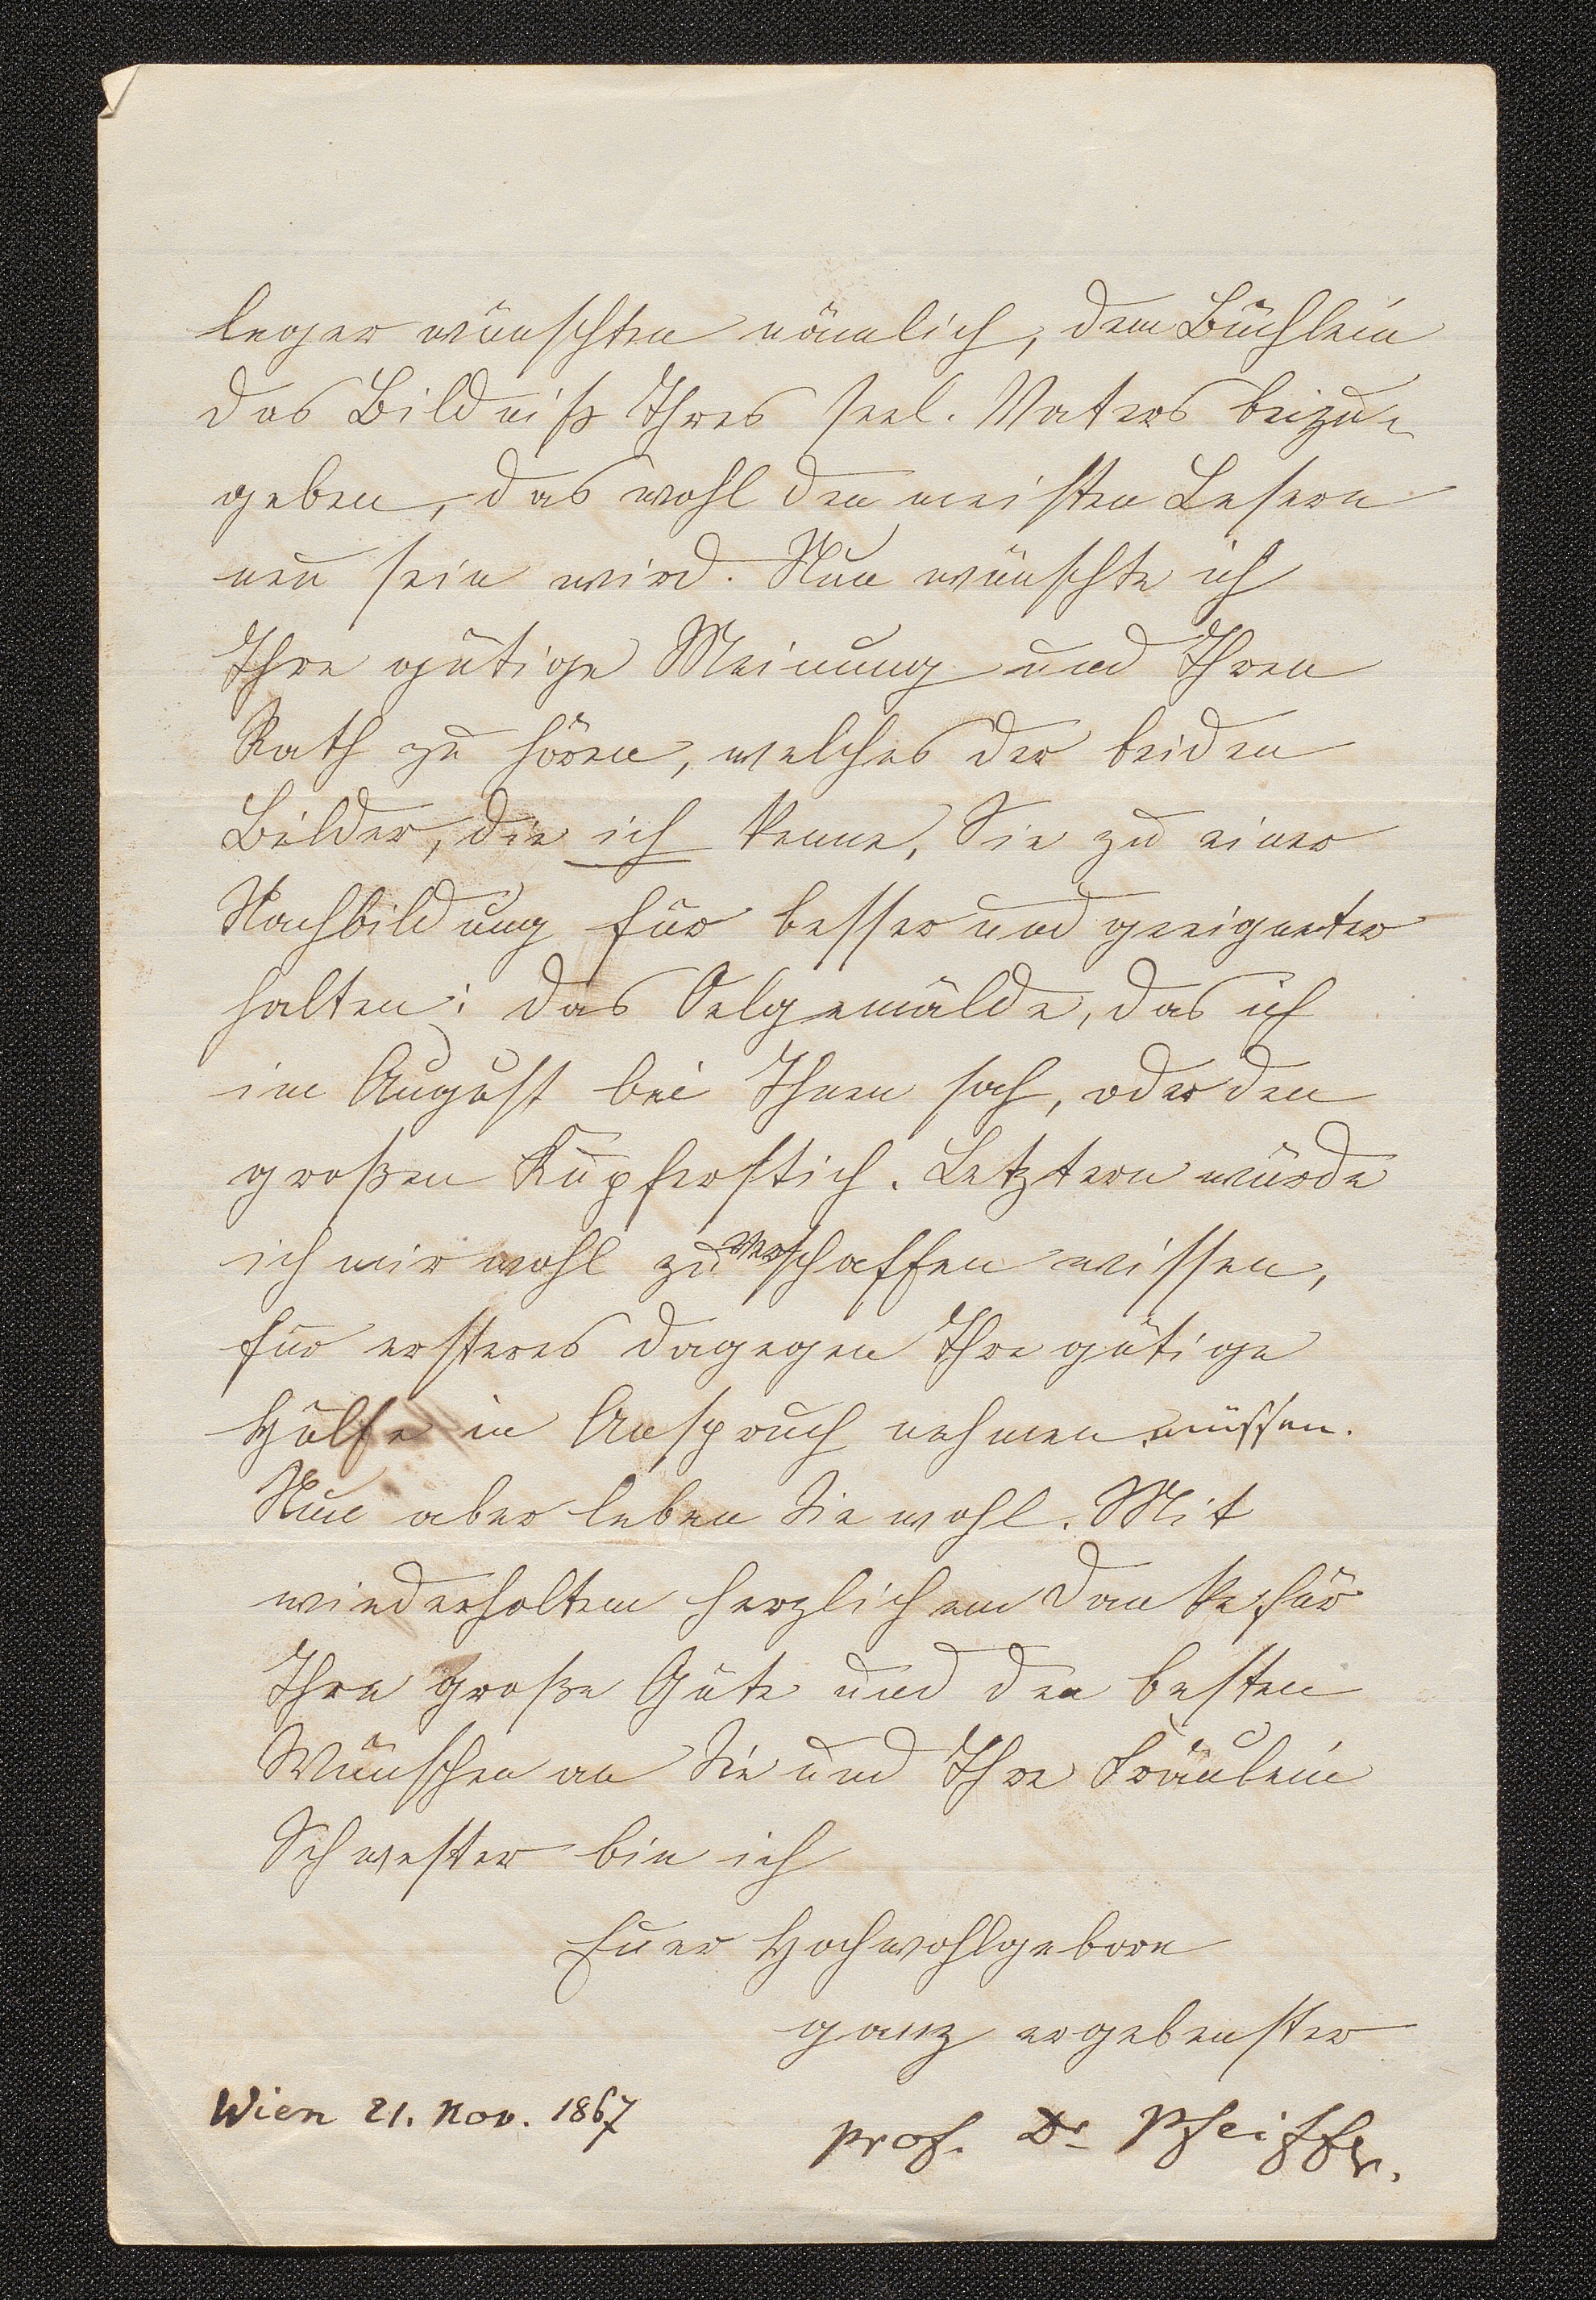 leger wünschten nämlich, dem Büchlein
das Bildniß Ihres seel. Vaters beizu-
geben, das wohl den meisten Lesern
neu sein wird. Nun wünschte ich
Ihre gütige Meinung und Ihren
Rath zu hören, welches der beiden
Bilder, die ich kenne, Sie zu einer
Nachbildung für besser und geeigneter
halten: das Oelgemälde, das ich
im August bei Ihnen sah, oder den
großen Kupferstich. Letztern würde
ich mir wohl zu verschaffen wissen,
für ersteres dagegen Ihre gütige
Hülfe in Anspruch nehmen müssen.
Nun aber leben Sie wohl. Mit
wiederholtem herzlichem Danke für
Ihre große Güte und den besten
Wünschen an Sie und Ihre Fräulein
Schwester bin ich
Euer Hochwohlgeborn
ganz ergebenster
Wien 21. Nov. 1867
Prof. Dr Pfeiffer.